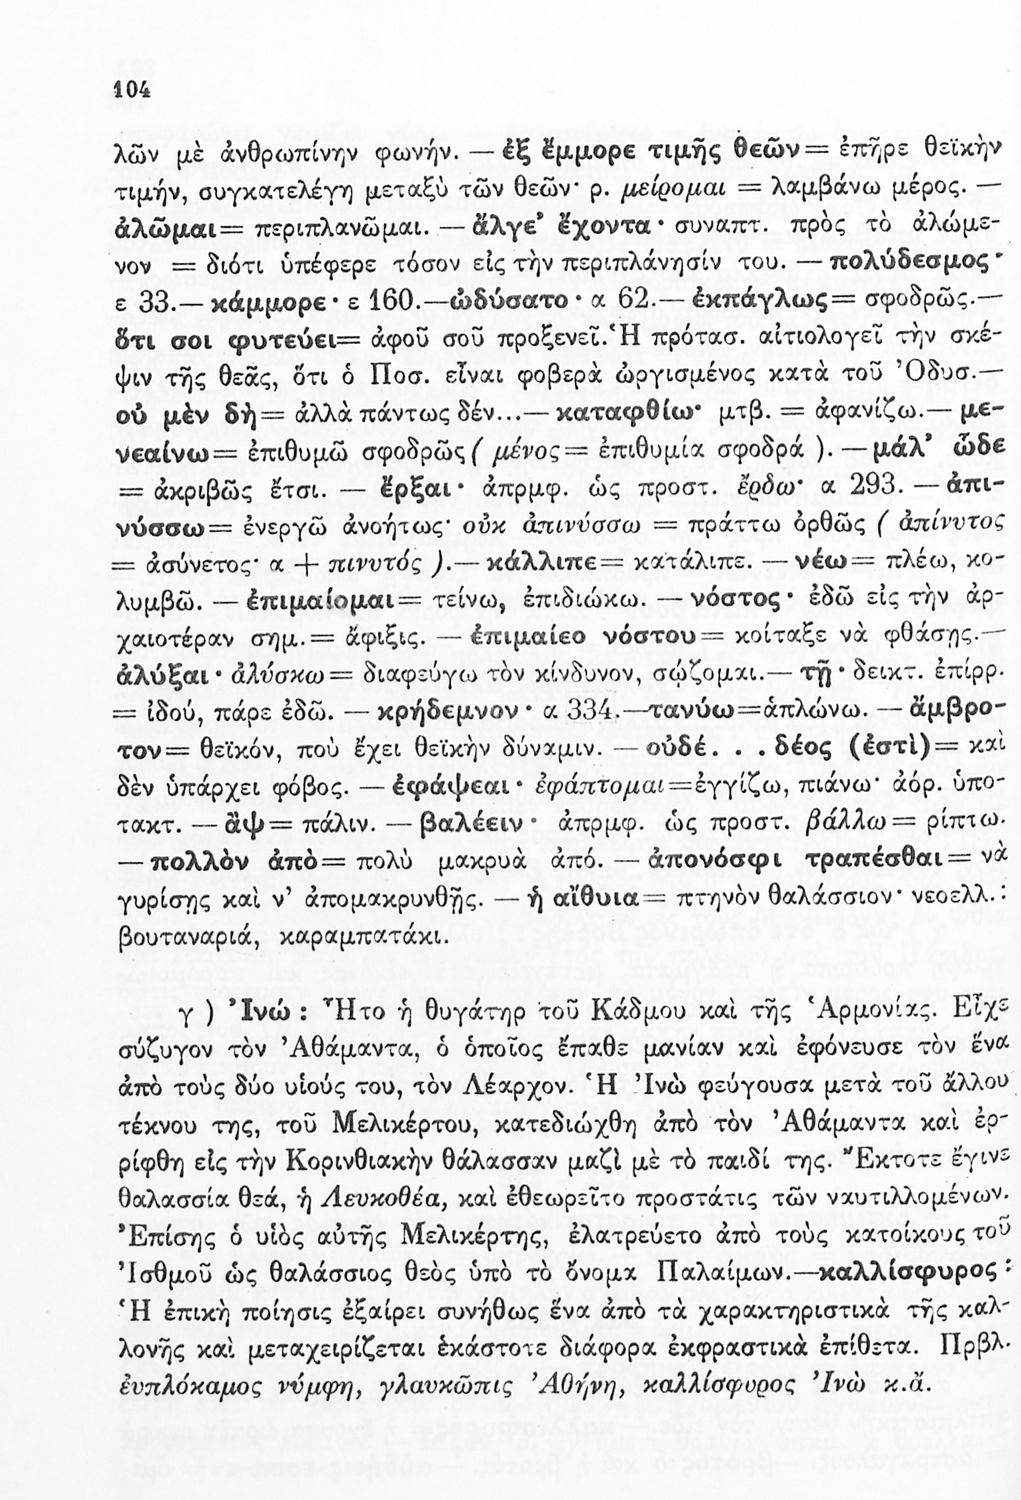 104
λῶν μὲ ἀνθρωπίνην φωνήν. — ἐξ ἔμμορε τιμῆς θεῶν = ἐπῆρε θεϊκὴν
τιμήν, συγκατελέγη μεταξὺ τῶν θεῶν· ρ. μείρομαι = λαμβάνω μέρος. —
ἀλῶμαι = περιπλανῶμαι. — ἄλγε' ἔχοντα · συναπτ. πρὸς τὸ ἀλώμε-
νον = διότι ὑπέφερε τόσον εἰς τὴν περιπλάνησίν του. — πολύδεσμος·
ε 33.— κάμμορε · ε 160.—ὠδύσατο · α 62.— ἐκπάγλως = σφοδρῶς.—
ὅτι σοι φυτεύει= ἀφοῦ σοῦ προξενεῖ. Ἡ πρότασ. αἰτιολογεῖ τὴν σκέ-
ψιν τῆς θεᾶς, ὅτι ὁ Ποσ. εἶναι φοβερὰ ὠργισμένος κατὰ τοῦ Ὀδυσ.—
οὐ μὲν δὴ = ἀλλὰ πάντως δέν...— καταφθίω· μτβ. = ἀφανίζω.— με-
νεαίνω = ἐπιθυμῶ σφοδρῶς ( μένος = ἐπιθυμία σφοδρά ). — μάλ' ὧδε
= ἀκριβῶς ἔτσι. — ἔρξαι · ἀπρμφ. ὡς προστ. ἔρδω· α 293. — ἀπι-
νύσσω = ἐνεργῶ ἀνοήτως· οὐκ ἀπινύσσω = πράττω ὀρθῶς ( ἀπίνυτος
= ἀσύνετος· α + πινυτός ).— κάλλιπε = κατάλιπε. — νέω = πλέω, κο-
λυμβῶ. — ἐπιμαίομαι = τείνω, ἐπιδιώκω. — νόστος · ἐδῶ εἰς τὴν ἀρ-
χαιοτέραν σημ. = ἄφιξις. — ἐπιμαίεο νόστου = κοίταξε νὰ φθάσῃς.—
ἀλύξαι · ἀλύσκω = διαφεύγω τὸν κίνδυνον, σῴζομαι.— τῇ · δεικτ. ἐπίρρ.
= ἰδού, πάρε ἐδῶ. — κρήδεμνον · α 334.—τανύω=ἁπλώνω. — ἄμβρο-
τον = θεϊκόν, ποὺ ἔχει θεϊκὴν δύναμιν. — οὐδέ. . . δέος (ἐστὶ) = καὶ
δὲν ὑπάρχει φόβος. — ἐφάψεαι · ἐφάπτομαι=ἐγγίζω, πιάνω· ἀόρ. ὑπο-
τακτ. — ἂψ = πάλιν. — βαλέειν · ἀπρμφ. ὡς προστ. βάλλω = ρίπτω.
— πολλὸν ἀπὸ = πολὺ μακρυὰ ἀπό. — ἀπονόσφι τραπέσθαι = νὰ
γυρίσῃς καὶ ν' ἀπομακρυνθῇς. — ἡ αἴθυια = πτηνὸν θαλάσσιον· νεοελλ. :
βουταναριά, καραμπατάκι.
γ ) Ἰνώ : Ἦτο ἡ θυγάτηρ τοῦ Κάδμου καὶ τῆς Ἁρμονίας. Εἶχε
σύζυγον τὸν Ἀθάμαντα, ὁ ὁποῖος ἔπαθε μανίαν καὶ ἐφόνευσε τὸν ἕνα
ἀπὸ τοὺς δύο υἱούς του, τὸν Λέαρχον. Ἡ Ἰνὼ φεύγουσα μετὰ τοῦ ἄλλου
τέκνου της, τοῦ Μελικέρτου, κατεδιώχθη ἀπὸ τὸν Ἀθάμαντα καὶ ἐρ-
ρίφθη εἰς τὴν Κορινθιακὴν θάλασσαν μαζὶ μὲ τὸ παιδί της. Ἔκτοτε ἔγινε
θαλασσία θεά, ἡ Λευκοθέα, καὶ ἐθεωρεῖτο προστάτις τῶν ναυτιλλομένων.
Ἐπίσης ὁ υἱὸς αὐτῆς Μελικέρτης, ἐλατρεύετο ἀπὸ τοὺς κατοίκους τοῦ
Ἰσθμοῦ ὡς θαλάσσιος θεὸς ὑπὸ τὸ ὄνομα Παλαίμων.—καλλίσφυρος :
Ἡ ἐπικὴ ποίησις ἐξαίρει συνήθως ἕνα ἀπὸ τὰ χαρακτηριστικὰ τῆς καλ-
λονῆς καὶ μεταχειρίζεται ἑκάστοτε διάφορα ἐκφραστικὰ ἐπίθετα. Πρβλ.
ἐυπλόκαμος νύμφη, γλαυκῶπις Ἀθήνη, καλλίσφυρος Ἰνὼ κ.ἄ.